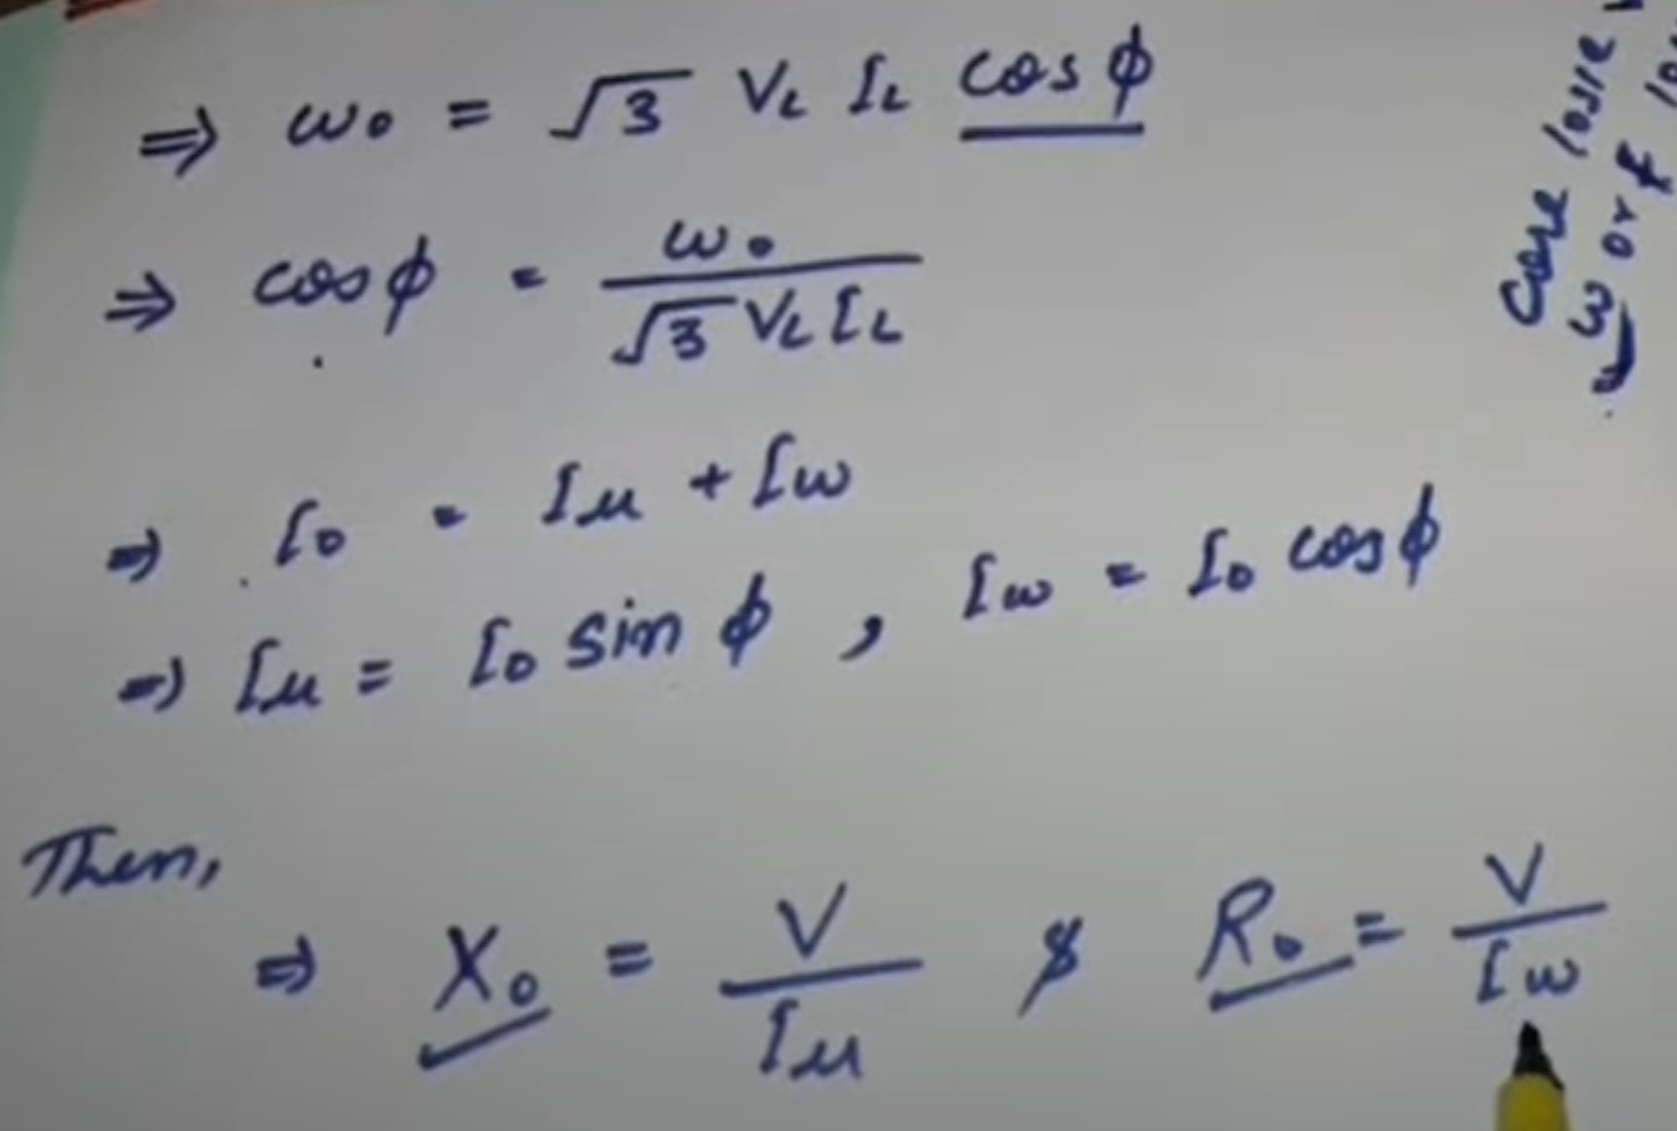 ⇒ ω₀ = √3 V_L I_L cosφ
⇒ cosφ = ω₀ / √3 V_L I_L
⇒ I₀ = Iμ + Iω
⇒ Iμ = I₀ sinφ , Iω = I₀ cosφ
Then,
⇒ X₀ = V / Iμ & R₀ = V / Iω
Core losse
W or f